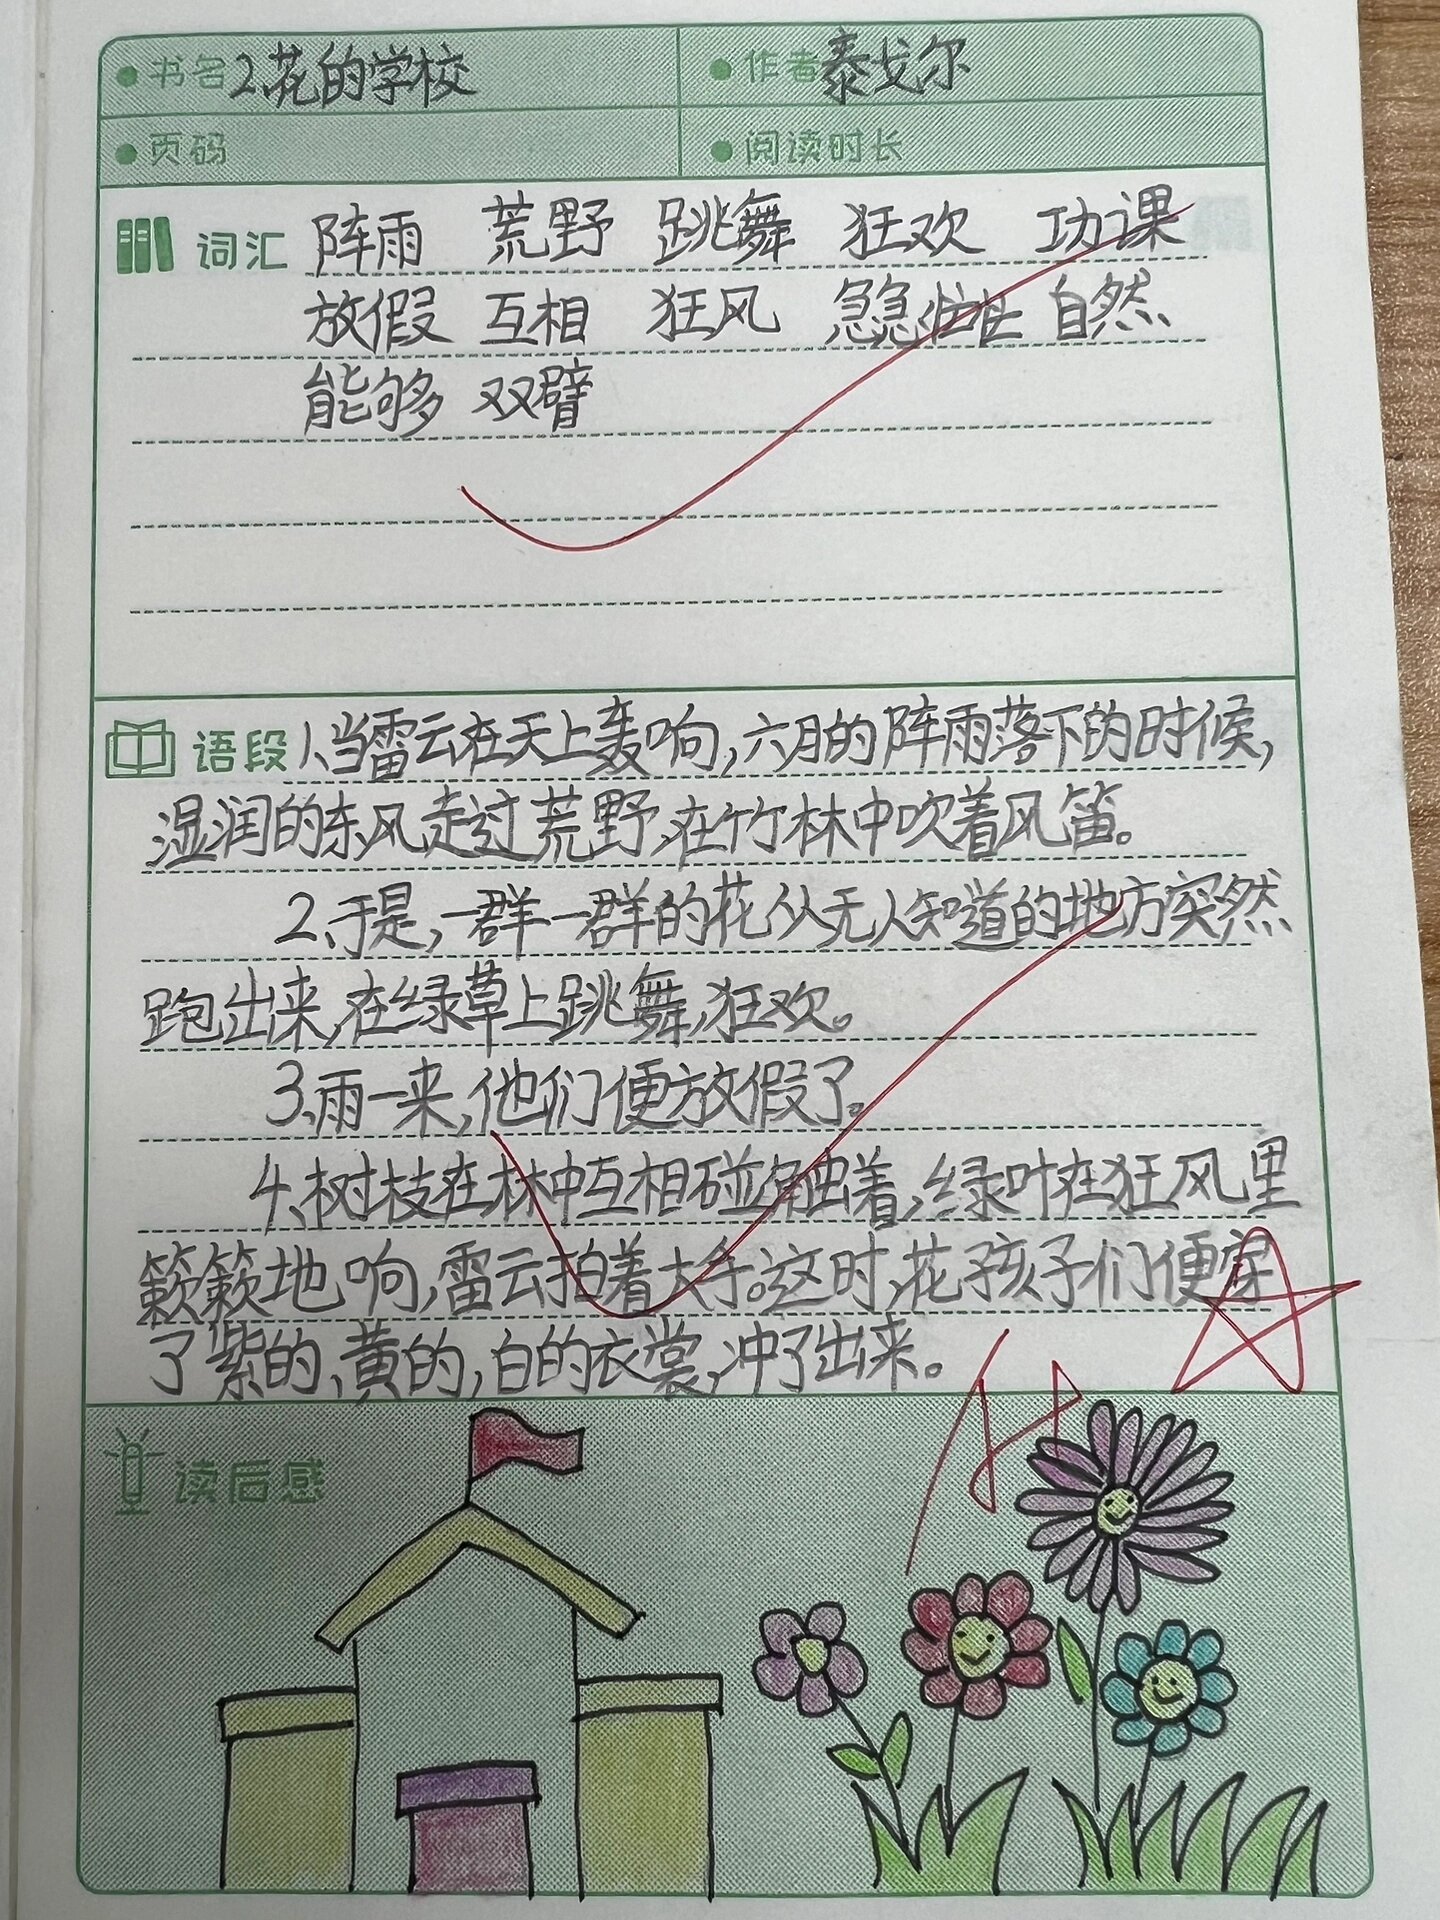 书名 2.花的学校 作者 泰戈尔
页码 阅读时长
词汇 阵雨 荒野 跳舞 狂欢 功课
放假 互相 狂风 急急忙忙 自然
能够 双臂
语段 1、当雷云在天上轰响,六月的阵雨落下的时候,
湿润的东风走过荒野,在竹林中吹着风笛。
2、于是,一群一群的花从无人知道的地方突然
跑出来,在绿草上跳舞,狂欢。
3、雨一来,他们便放假了。
4、树枝在林中互相碰触着,绿叶在狂风里
簌簌地响,雷云拍着大手。这时,花孩子们便穿
了紫的,黄的,白的衣裳,冲了出来。
读后感